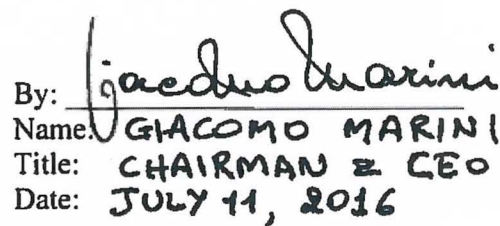 By: Giacomo Marini
Name: GIACOMO MARINI
Title: CHAIRMAN & CEO
Date: JULY 11, 2016